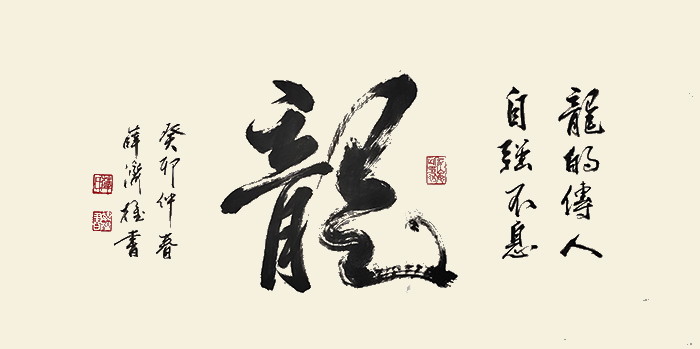 龍的傳人
自强不息
龍
癸卯仲春
薛濟書